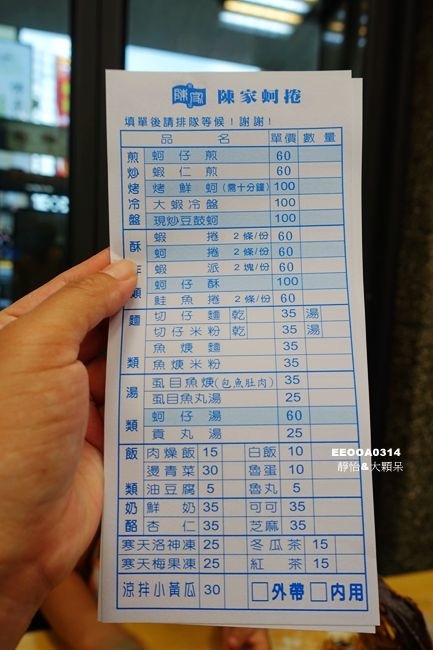 陳家 陳家蚵捲
填單後請排隊等候！謝謝！
品名 單價 數量
煎炒烤冷盤
蚵仔煎 60
蝦仁煎 60
烤鮮蚵(需十分鐘) 100
大蝦冷盤 100
現炒豆鼓蚵 100
酥炸類
蝦捲 2條/份 60
蚵捲 2條/份 60
蝦派 2塊/份 60
蚵仔酥 100
鮭魚捲 2條/份 60
麵類
切仔麵 乾 35 湯
切仔米粉 乾 35 湯
魚焿麵 35
魚焿米粉 35
湯類
虱目魚焿(包魚肚肉) 35
虱目魚丸湯 25
蚵仔湯 60
貢丸湯 25
飯類
肉燥飯 15 白飯 10
燙青菜 30 魯蛋 10
油豆腐 5 魯丸 5
奶酪
鮮奶 35 可可 35
杏仁 35 芝麻 35
寒天洛神凍 25 冬瓜茶 15
寒天梅果凍 25 紅茶 15
涼拌小黃瓜 30 □外帶 □內用
EEOOA0314
靜怡&大顆呆